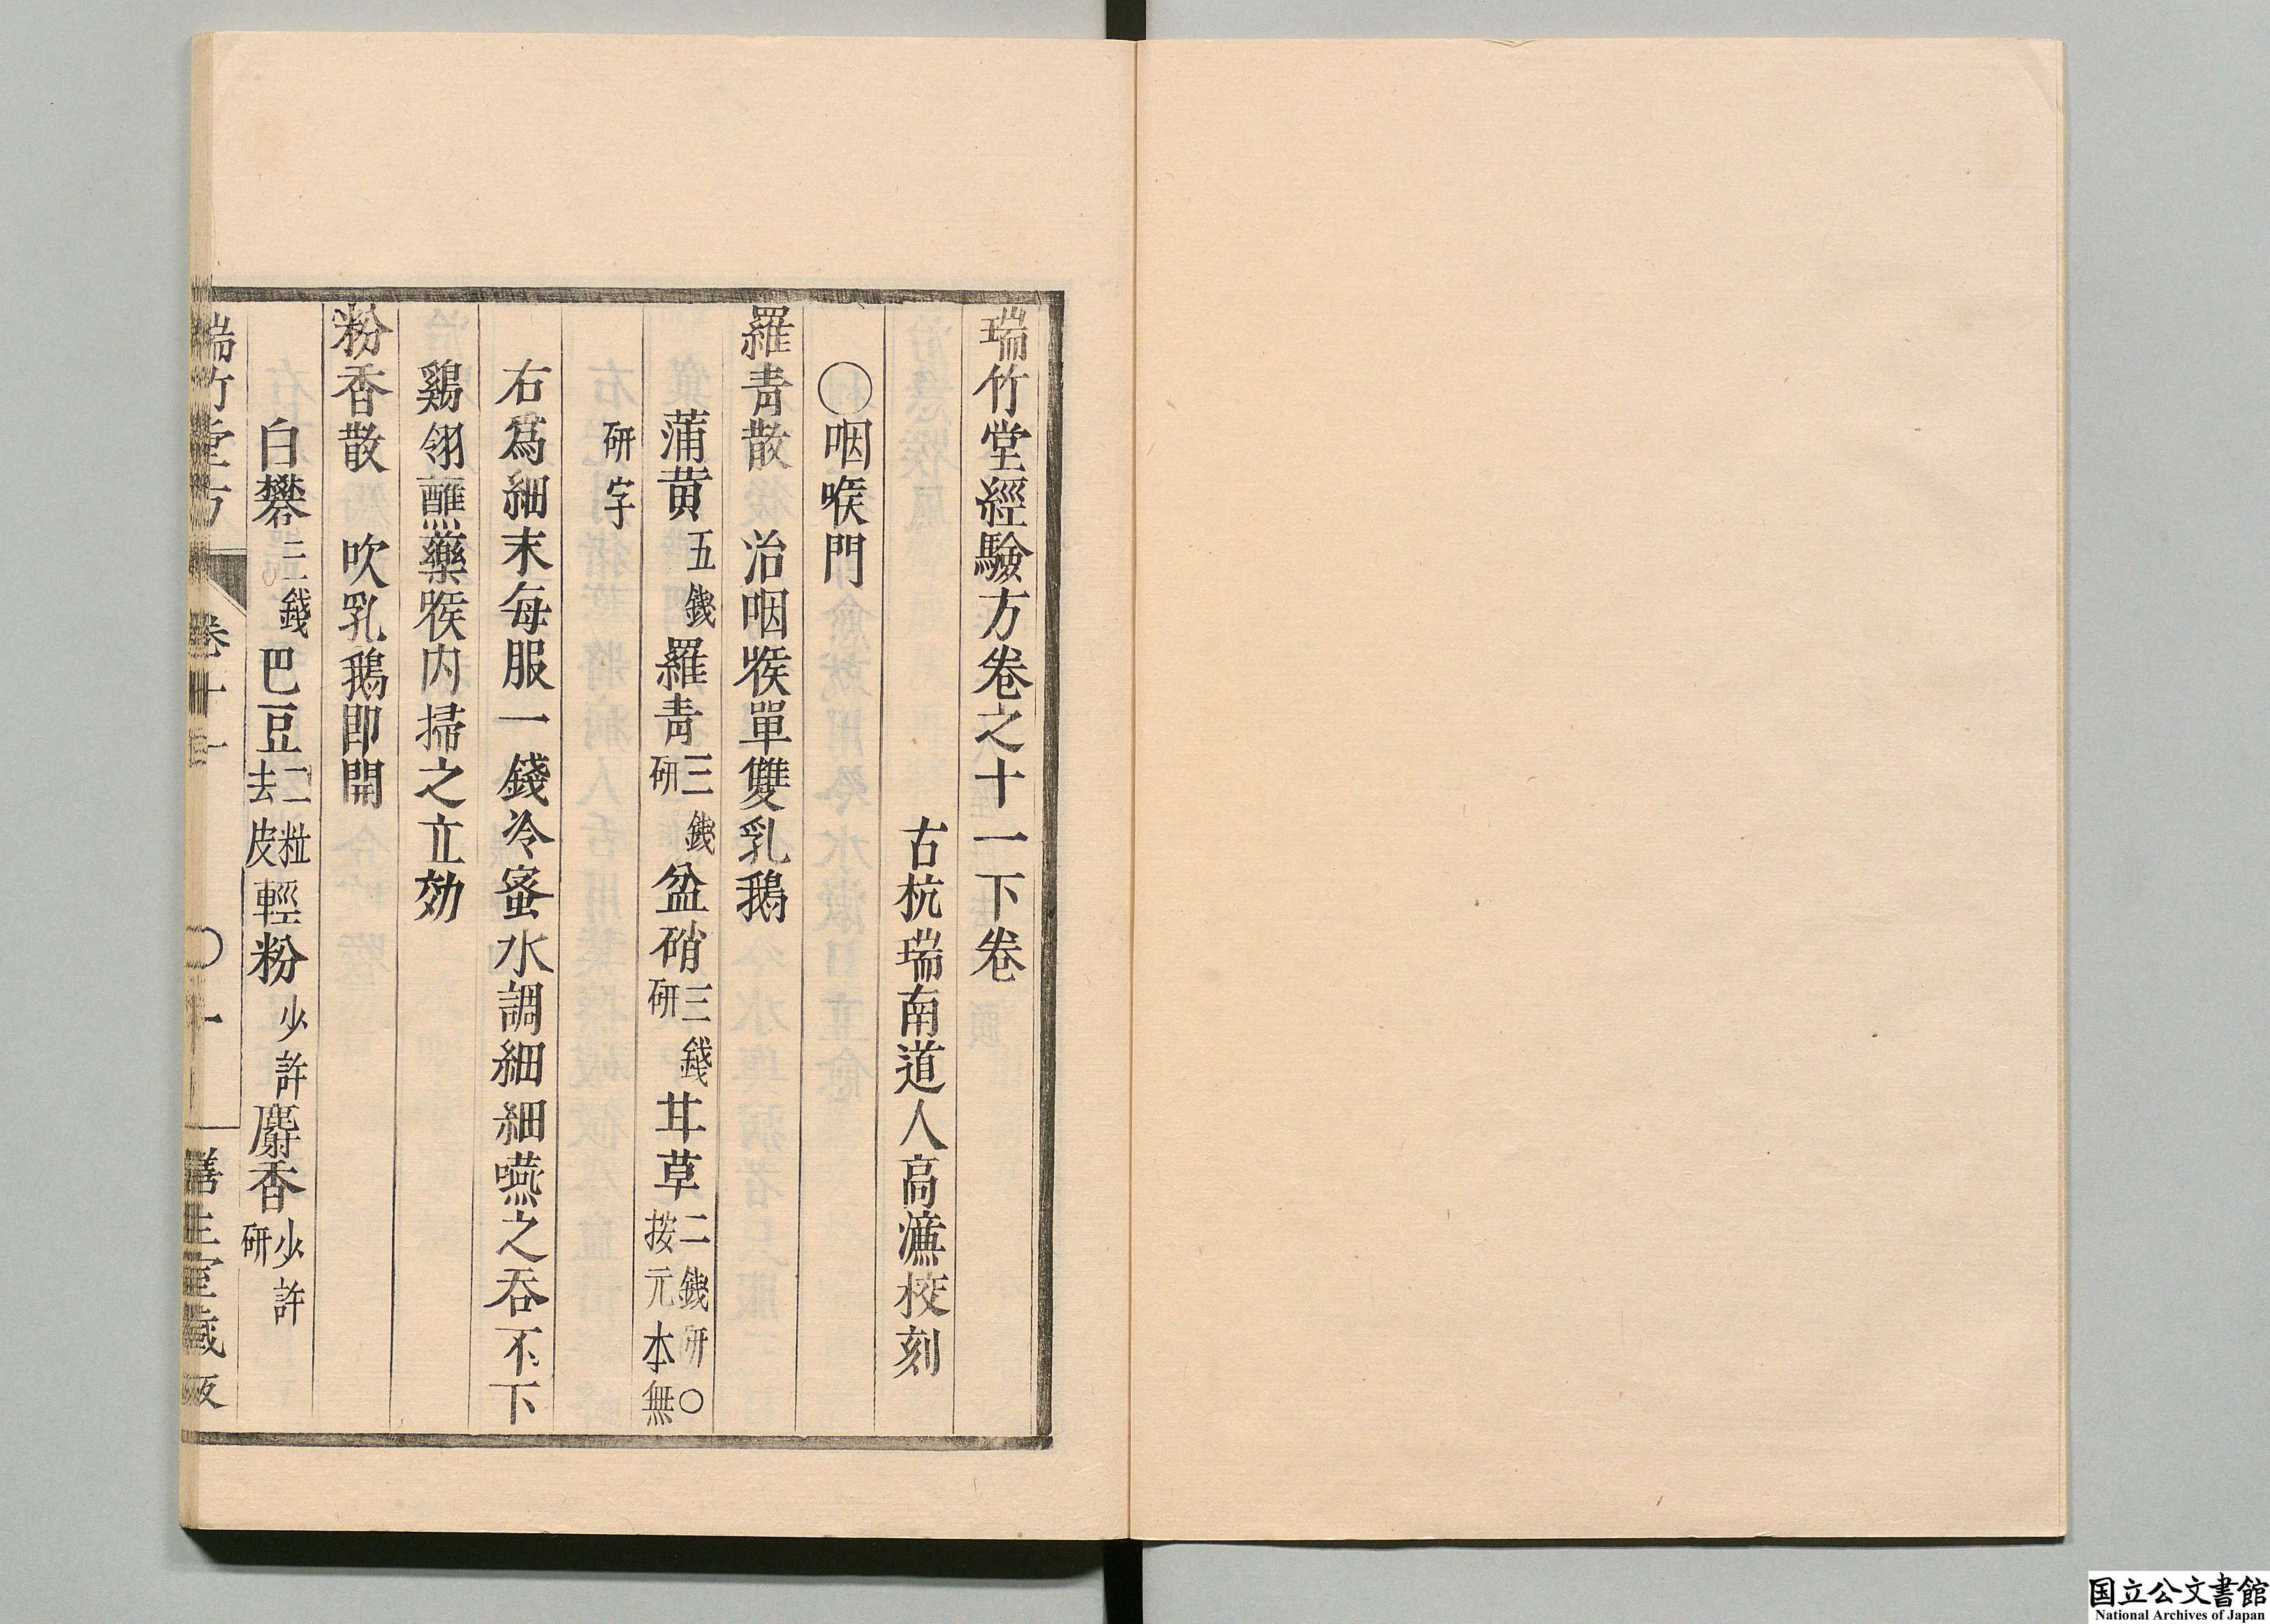 瑞竹堂經驗方卷之十一下卷
古杭瑞南道人高濂校刻
〇咽喉門
羅青散 治咽喉單雙乳鵝
蒲黄五錢羅青三錢研盆硝三錢研甘草二錢研〇按元本無
研字
右爲細末每服一錢冷蜜水調細細嚥之吞不下
鷄翎蘸藥喉内掃之立効
粉香散 吹乳鵝即開
白礬三錢巴豆二粒去皮輕粉少許麝香少許研
瑞竹堂方 卷十一 〇一 善生室藏版
国立公文書館
National Archives of Japan